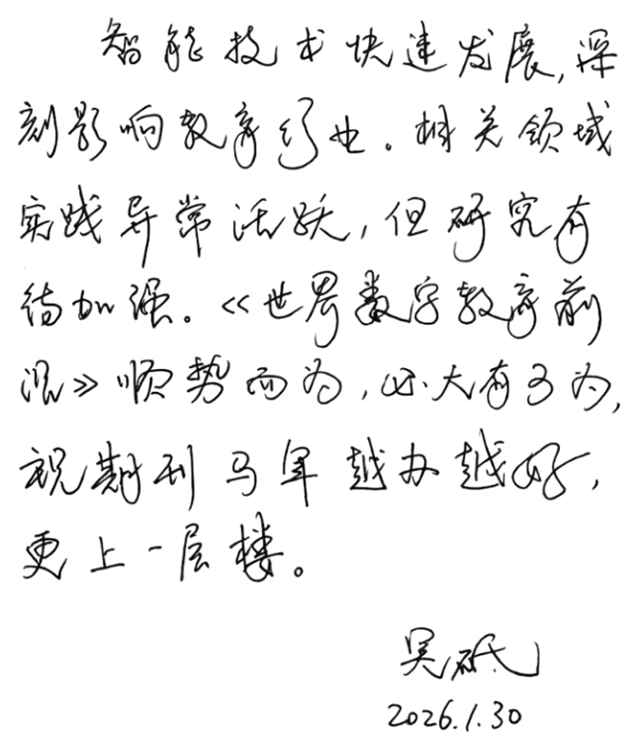 智能技术快速发展,深
刻影响教育行业。相关领域
实践异常活跃,但研究有
待加强。《世界数字教育前
沿》顺势而为,必大有可为,
祝期刊马年越办越好,
更上一层楼。
吴砥
2026.1.30